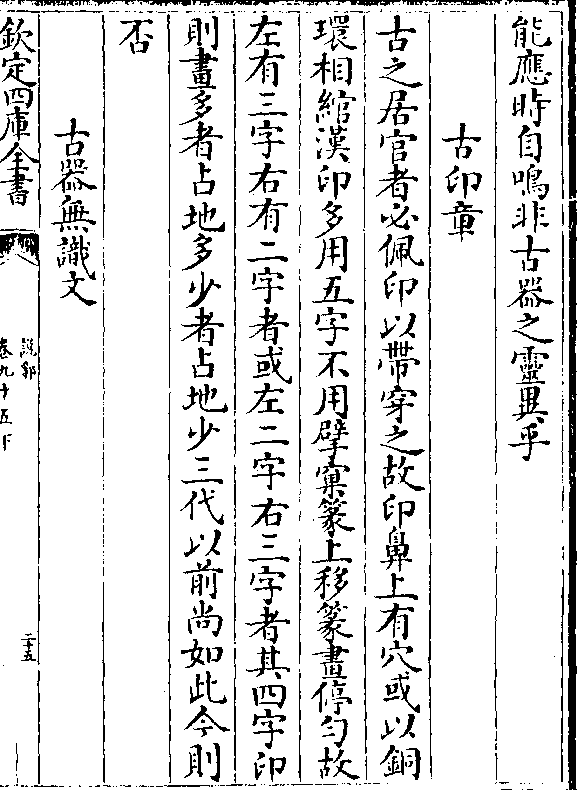 能應時自鳴非古器之靈異乎
古印章
古之居官者必佩印以帶穿之故印鼻上有穴或以銅
環相綰漢印多用五字不用擘窠篆上移篆畫停勻故
左有三字右有二字者或左二字右三字者其四字印
則畫多者占地多少者占地少三代以前尚如此今則
否
古器無識文
欽定四庫全書
說郛
卷九十五下
二十五